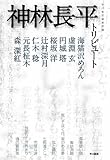 神林長平
トリビュート
海猫沢めろん
虚淵玄
円城塔
桜坂洋
辻村深月
仁木稔
元長柾木
森深紅